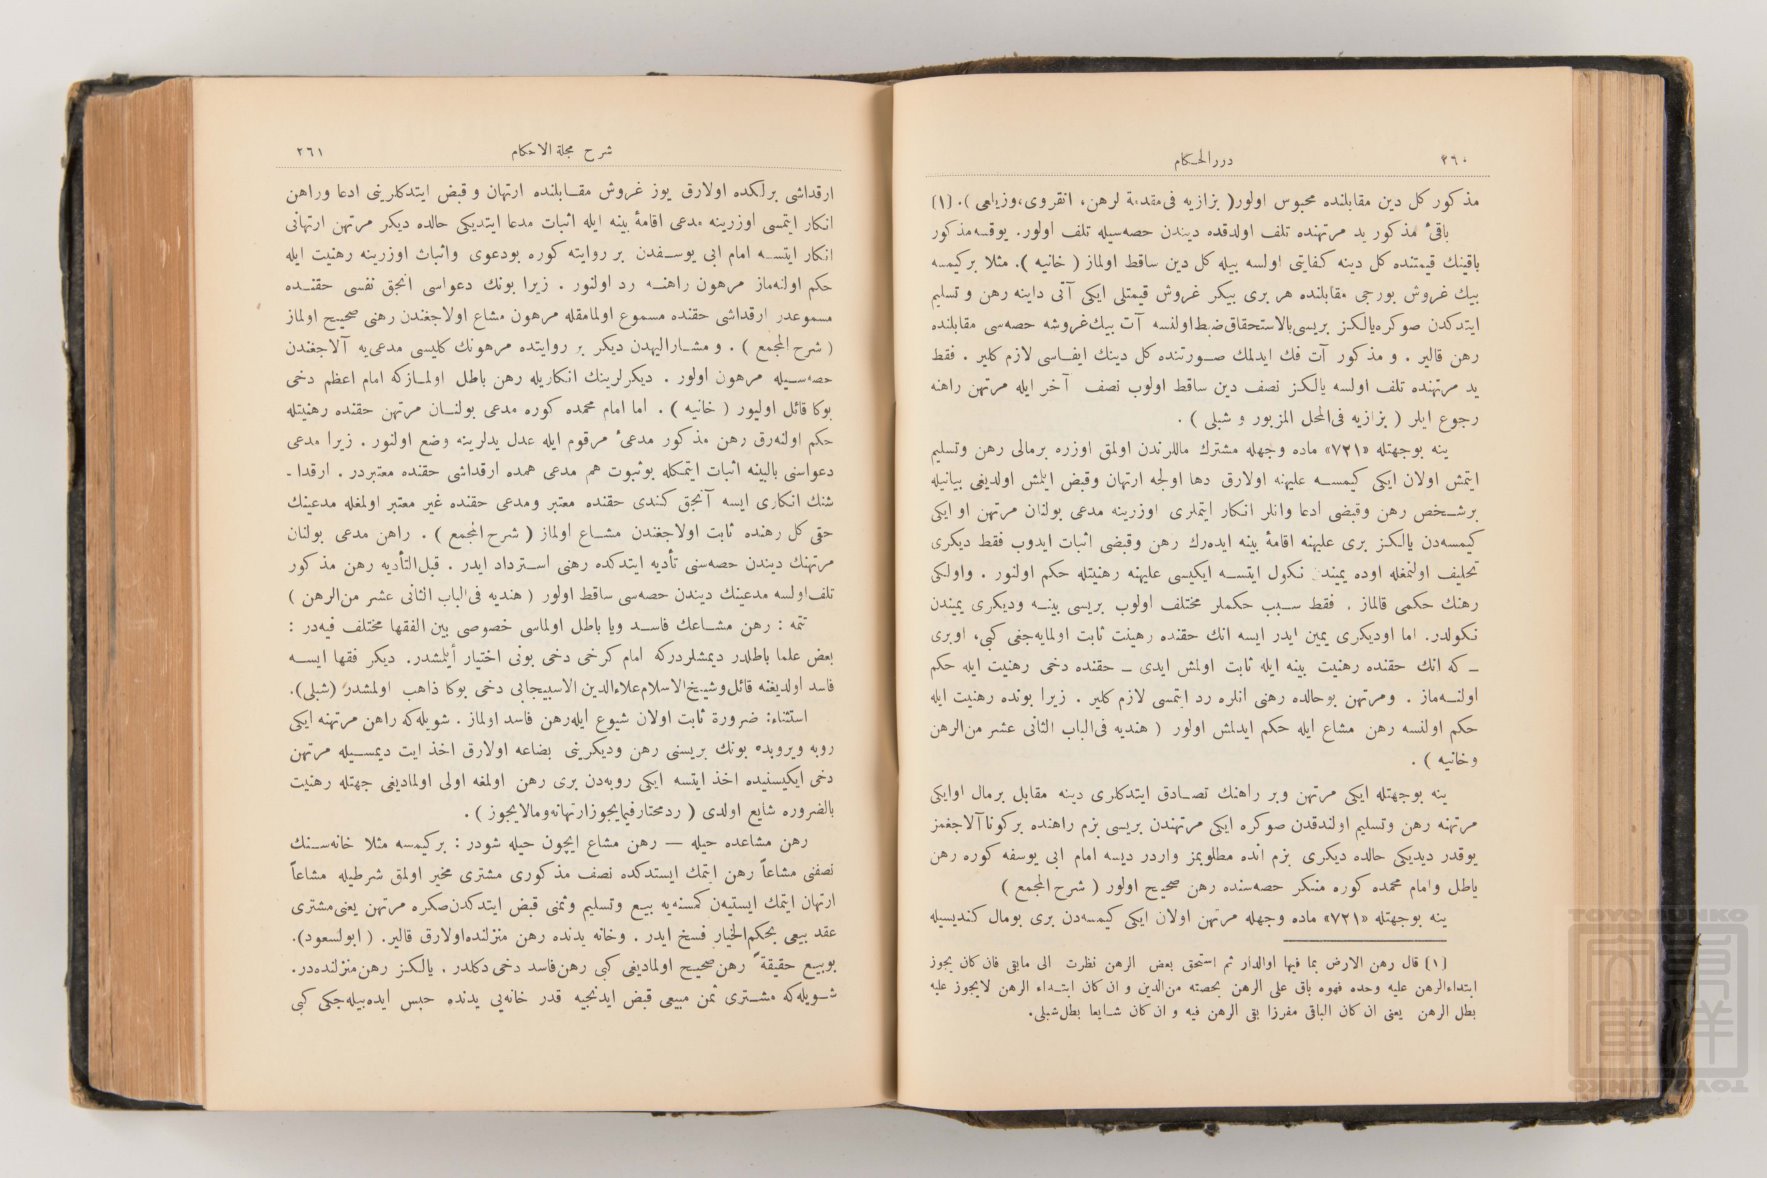 ٢٦٠
دررالحكام
مذكور كل دين مقابلنده محبوس اولور( بزازيه فى‌مقدمة لرهن، انقروى،وزيلعى ). (١)
باقئ مذكور يد مرتهنده تلف اولدقده ديندن حصه‌سيله تلف اولور. يوقسه‌مذكور
باقينك قيمتنده كل دينه كفايتى اولسه بيله كل دين ساقط اولماز ( خانيه ). مثلا بركيمسه
بيك غروش بورجى مقابلنده هر برى بيكر غروش قيمتلى ايكى آتى داينه رهن و تسليم
ايتدكدن صوكره‌يالكز بريسى‌بالاستحقاق‌ضبط‌اولنسه آت بيك‌غروشه حصه‌سى مقابلنده
رهن قالير . و مذكور آت فك ايدلمك صورتنده كل دينك ايفاسى لازم كلير . فقط
يد مرتهنده تلف اولسه يالكز نصف دين ساقط اولوب نصف آخر ايله مرتهن راهنه
رجوع ايلر ( بزازيه فى‌المحل المزبور و شبلى ) .
ينه بوجهتله «٧٢١» ماده وجهله مشترك ماللرندن اولمق اوزره برمالى رهن وتسليم
ايتمش اولان ايكى كيمسه عليهنه اولارق دها اولجه ارتهان وقبض ايلمش اولديغى بيانيله
برشخص رهن وقبضى ادعا وانلر انكار ايتملرى اوزرينه مدعى بولنان مرتهن او ايكى
كيمسه‌دن يالكز برى عليهنه اقامهٔ بينه ايده‌رك رهن وقبضى اثبات ايدوب فقط ديكرى
تحليف اولنمغله اوده يميندن نكول ايتسه ايكيسى عليهنه رهنيتله حكم اولنور . واولكى
رهنك حكمى قالماز . فقط سبب حكملر مختلف اولوب بريسى بينه وديكرى يميندن
نكولدر. اما اوديكرى يمين ايدر ايسه انك حقنده رهنيت ثابت اولمايه‌جغى كبى، اوبرى
ـ كه انك حقنده رهنيت بينه ايله ثابت اولمش ايدى ـ حقنده دخى رهنيت ايله حكم
اولنه‌ماز . ومرتهن بوحالده رهنى انلره رد ايتمسى لازم كلير . زيرا بونده رهنيت ايله
حكم اولنسه رهن مشاع ايله حكم ايدلمش اولور ( هنديه فى‌الباب الثانى عشر من‌الرهن
وخانيه ) .
ينه بوجهتله ايكى مرتهن وبر راهنك تصادق ايتدكلرى دينه مقابل برمال اوايكى
مرتهنه رهن وتسليم اولندقدن صوكره ايكى مرتهندن بريسى بزم راهنده بركوناآلاجغمز
يوقدر ديديكى حالده ديكرى بزم انده مطلوبمز واردر ديسه امام ابى يوسفه كوره رهن
باطل وامام محمده كوره منكر حصه‌سنده رهن صحيح اولور ( شرح المجمع )
ينه بوجهتله «٧٢١» ماده وجهله مرتهن اولان ايكى كيمسه‌دن برى بومال كنديسيله
(١) قال رهن الارض بما فيها اوالدار ثم استحق بعض الرهن نظرت الى مابقى فان كان يجوز
ابتداءالرهن عليه وحده فهوه باق على الرهن بحصته من‌الدين و ان كان ابتداء الرهن لايجوز عليه
بطل الرهن يعنى ان كان الباقى مفرزا بقى الرهن فيه و ان كان شايعا بطل‌شبلى.
شرح مجلة الاحكام
٢٦١
ارقداشى برلكده اولارق يوز غروش مقابلنده ارتهان وقبض ايتدكلرينى ادعا وراهن
انكار ايتمسى اوزرينه مدعى اقامهٔ بينه ايله اثبات مدعا ايتديكى حالده ديكر مرتهن ارتهانى
انكار ايتسه امام ابى يوسفدن بر روايته كوره بودعوى واثبات اوزرينه رهنيت ايله
حكم اولنه‌ماز مرهون راهنه رد اولنور . زيرا بونك دعواسى انجق نفسى حقنده
مسموعدر ارقداشى حقنده مسموع اولمامقله مرهون مشاع اولاجغندن رهنى صحيح اولماز
( شرح المجمع ) . و مشاراليهدن ديكر بر روايتده مرهونك كليسى مدعى‌يه آلاجغندن
حصه‌سيله مرهون اولور . ديكرلرينك انكاريله رهن باطل اولمازكه امام اعظم دخى
بوكا قائل اوليور ( خانيه ) . اما امام محمده كوره مدعى بولنان مرتهن حقنده رهنيتله
حكم اولنه‌رق رهن مذكور مدعئ مرقوم ايله عدل يدلرينه وضع اولنور . زيرا مدعى
دعواسنى بالبينه اثبات ايتمكله بوثبوت هم مدعى همده ارقداشى حقنده معتبردر . ارقدا ـ
شنك انكارى ايسه آنجق كندى حقنده معتبر ومدعى حقنده غير معتبر اولمغله مدعينك
حقى كل رهنده ثابت اولاجغندن مشاع اولماز ( شرح المجمع ) . راهن مدعى بولنان
مرتهنك ديندن حصه‌سنى تأديه ايتدكده رهنى استرداد ايدر . قبل‌التأديه رهن مذكور
تلف‌اولسه مدعينك ديندن حصه‌سى ساقط اولور ( هنديه فى‌الباب الثانى عشر من‌الرهن )
تتمه : رهن مشاعك فاسد ويا باطل اولماسى خصوصى بين الفقها مختلف فيه‌در :
بعض علما باطلدر ديمشلردركه امام كرخى دخى بونى اختيار ايلمشدر. ديكر فقها ايسه
فاسد اولديغنه قائل‌وشيخ‌الاسلام‌علاءالدين الاسبيجابى دخى بوكا ذاهب اولمشدر (شبلى).
استثناء: ضرورة ثابت اولان شيوع ايله‌رهن فاسد اولماز . شويله‌كه راهن مرتهنه ايكى
روبه ويروبده بونك بريسنى رهن وديكرينى بضاعه اولارق اخذ ايت ديمسيله مرتهن
دخى ايكيسنيده اخذ ايتسه ايكى روبه‌دن برى رهن اولمغه اولى اولماديغى جهتله رهنيت
بالضروره شايع اولدى ( ردمحتارفيمايجوزارتهانه‌ومالايجوز ) .
رهن مشاعده حيله — رهن مشاع ايچون حيله شودر : بركيمسه مثلا خانه‌سنك
نصفنى مشاعاً رهن ايتمك ايستدكده نصف مذكورى مشترى مخير اولمق شرطيله مشاعاً
ارتهان ايتمك ايستيه‌ن كمسنه‌يه بيع وتسليم وثمنى قبض ايتدكدن‌صكره مرتهن يعنى‌مشترى
عقد بيعى بحكم‌الخيار فسخ ايدر . وخانه يدنده رهن منزلنده‌اولارق قالير. ( ابولسعود).
بوبيع حقيقةً رهن‌صحيح اولماديغى كبى رهن‌فاسد دخى دكلدر . يالكز رهن‌منزلنده‌در.
شويله‌كه مشترى ثمن مبيعى قبض ايدنجيه قدر خانه‌يى يدنده حبس ايده‌بيله‌جكى كبى